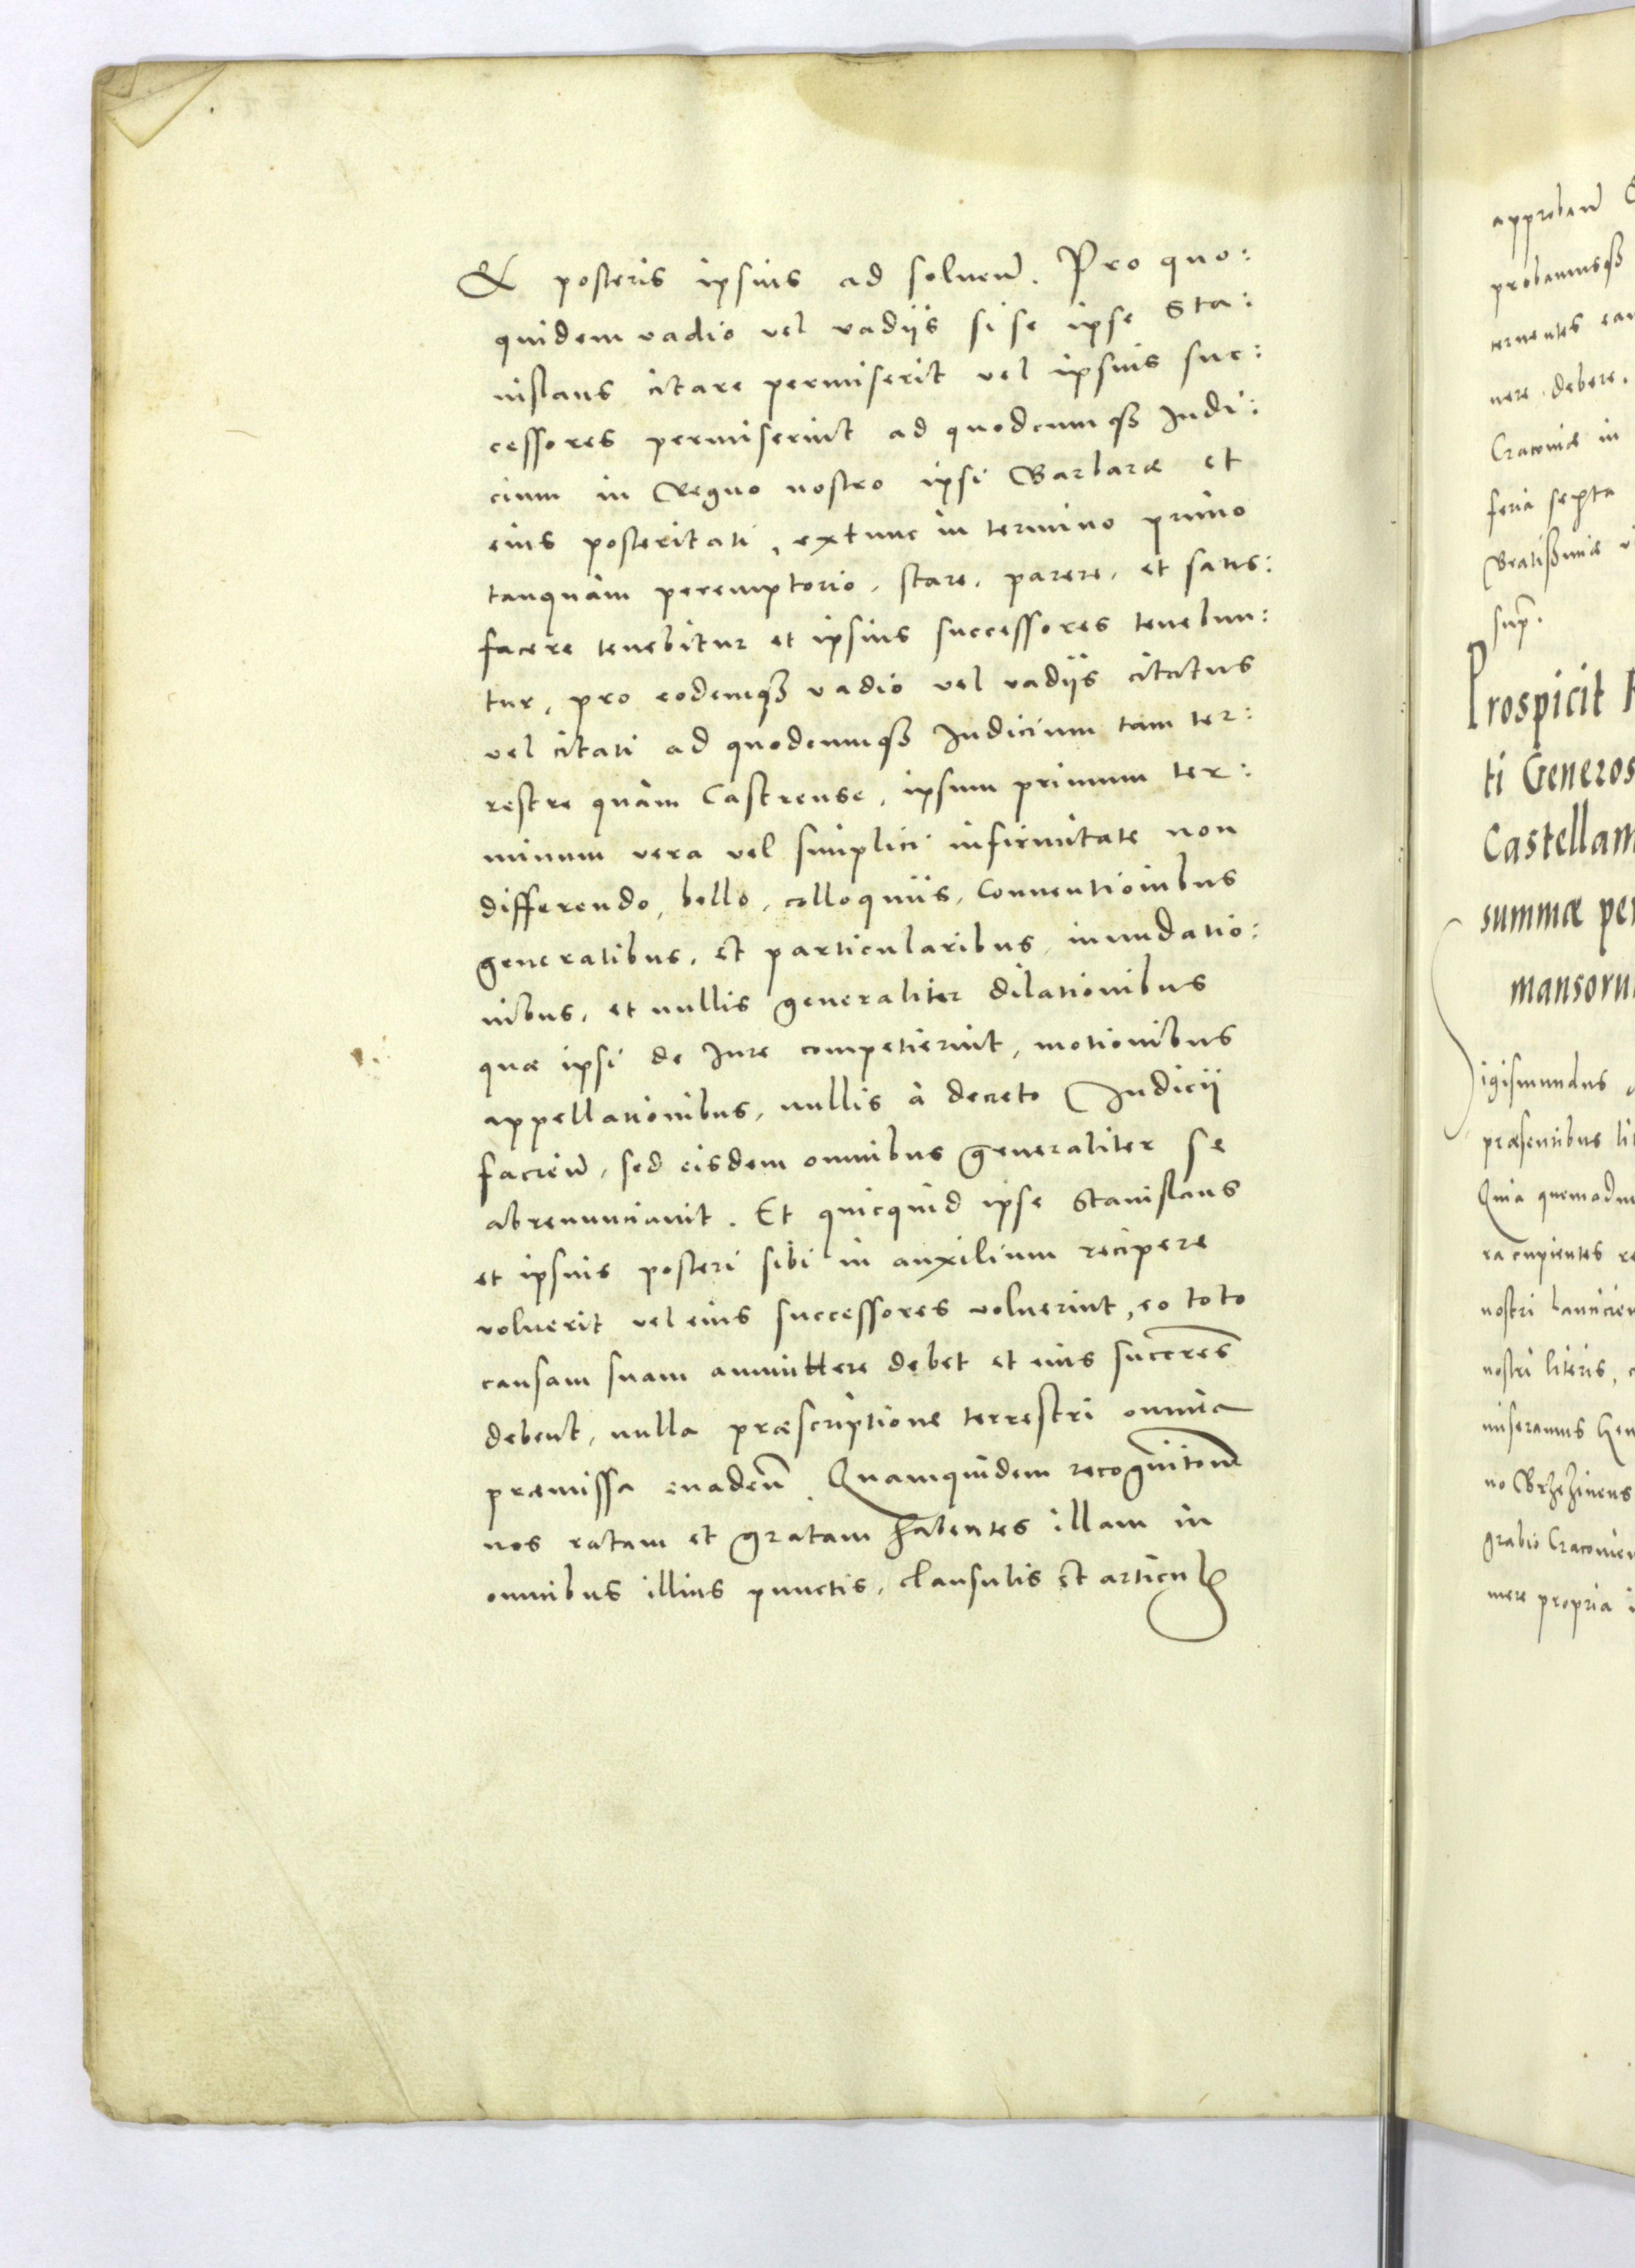 & posteris ipsius ad soluen̄. Pro quo:
quidem vadio vel vadijs si se ipse Sta:
nislaus citare permiserit vel ipsius suc:
cessores permiserint ad quodcumqꝫ Judi:
cium in Regno nostro ipsi Barbaræ et
eius posteritati, extunc in termino primo
tanquàm peremptorio, stare, parere, et satis:
facere tenebitur et ipsius successores tenebun:
tur, pro eodemqꝫ vadio vel vadijs citatus
vel citati ad quodcumqꝫ Judicium tam ter:
restre quàm Castrense, ipsum primum ter:
minum vera vel simplici infirmitate non
differendo, bello, colloquiis, Conuentionibus
generalibus, et particularibus, inundatio:
nibus, et nullis generaliter dilationibus
quæ ipsi de Jure competierint, motionibus
appellationibus, nullis à decreto Judicij
facien̄, sed eisdem omnibus generaliter se
abrenunciauit. Et quicquid ipse Stanislaus
et ipsius posteri sibi in auxilium recipere
voluerit vel eius successores voluerint, eo toto
causam suam ammittere debet et eius succres̄
debent, nulla præscriptione terrestri omnia
præmissa euaden̄. Quamquidem recognitiōn̄
nos ratam et gratam habentes illam in
omnibus illius punctis, clausulis et articulꝭ
approban̄
probamusqꝫ
cernentes
nere debere.
Cracoviæ in
feria sexta
Beatissimæ
sup.
Prospicit
ti Generos
Castellan
summæ per
mansoru
Sigismundus
præsentibus lit
Quia quemadm
ra cupientes re
nostri
nostri literis,
miseramus
no
grabio Cracovien
mere propria